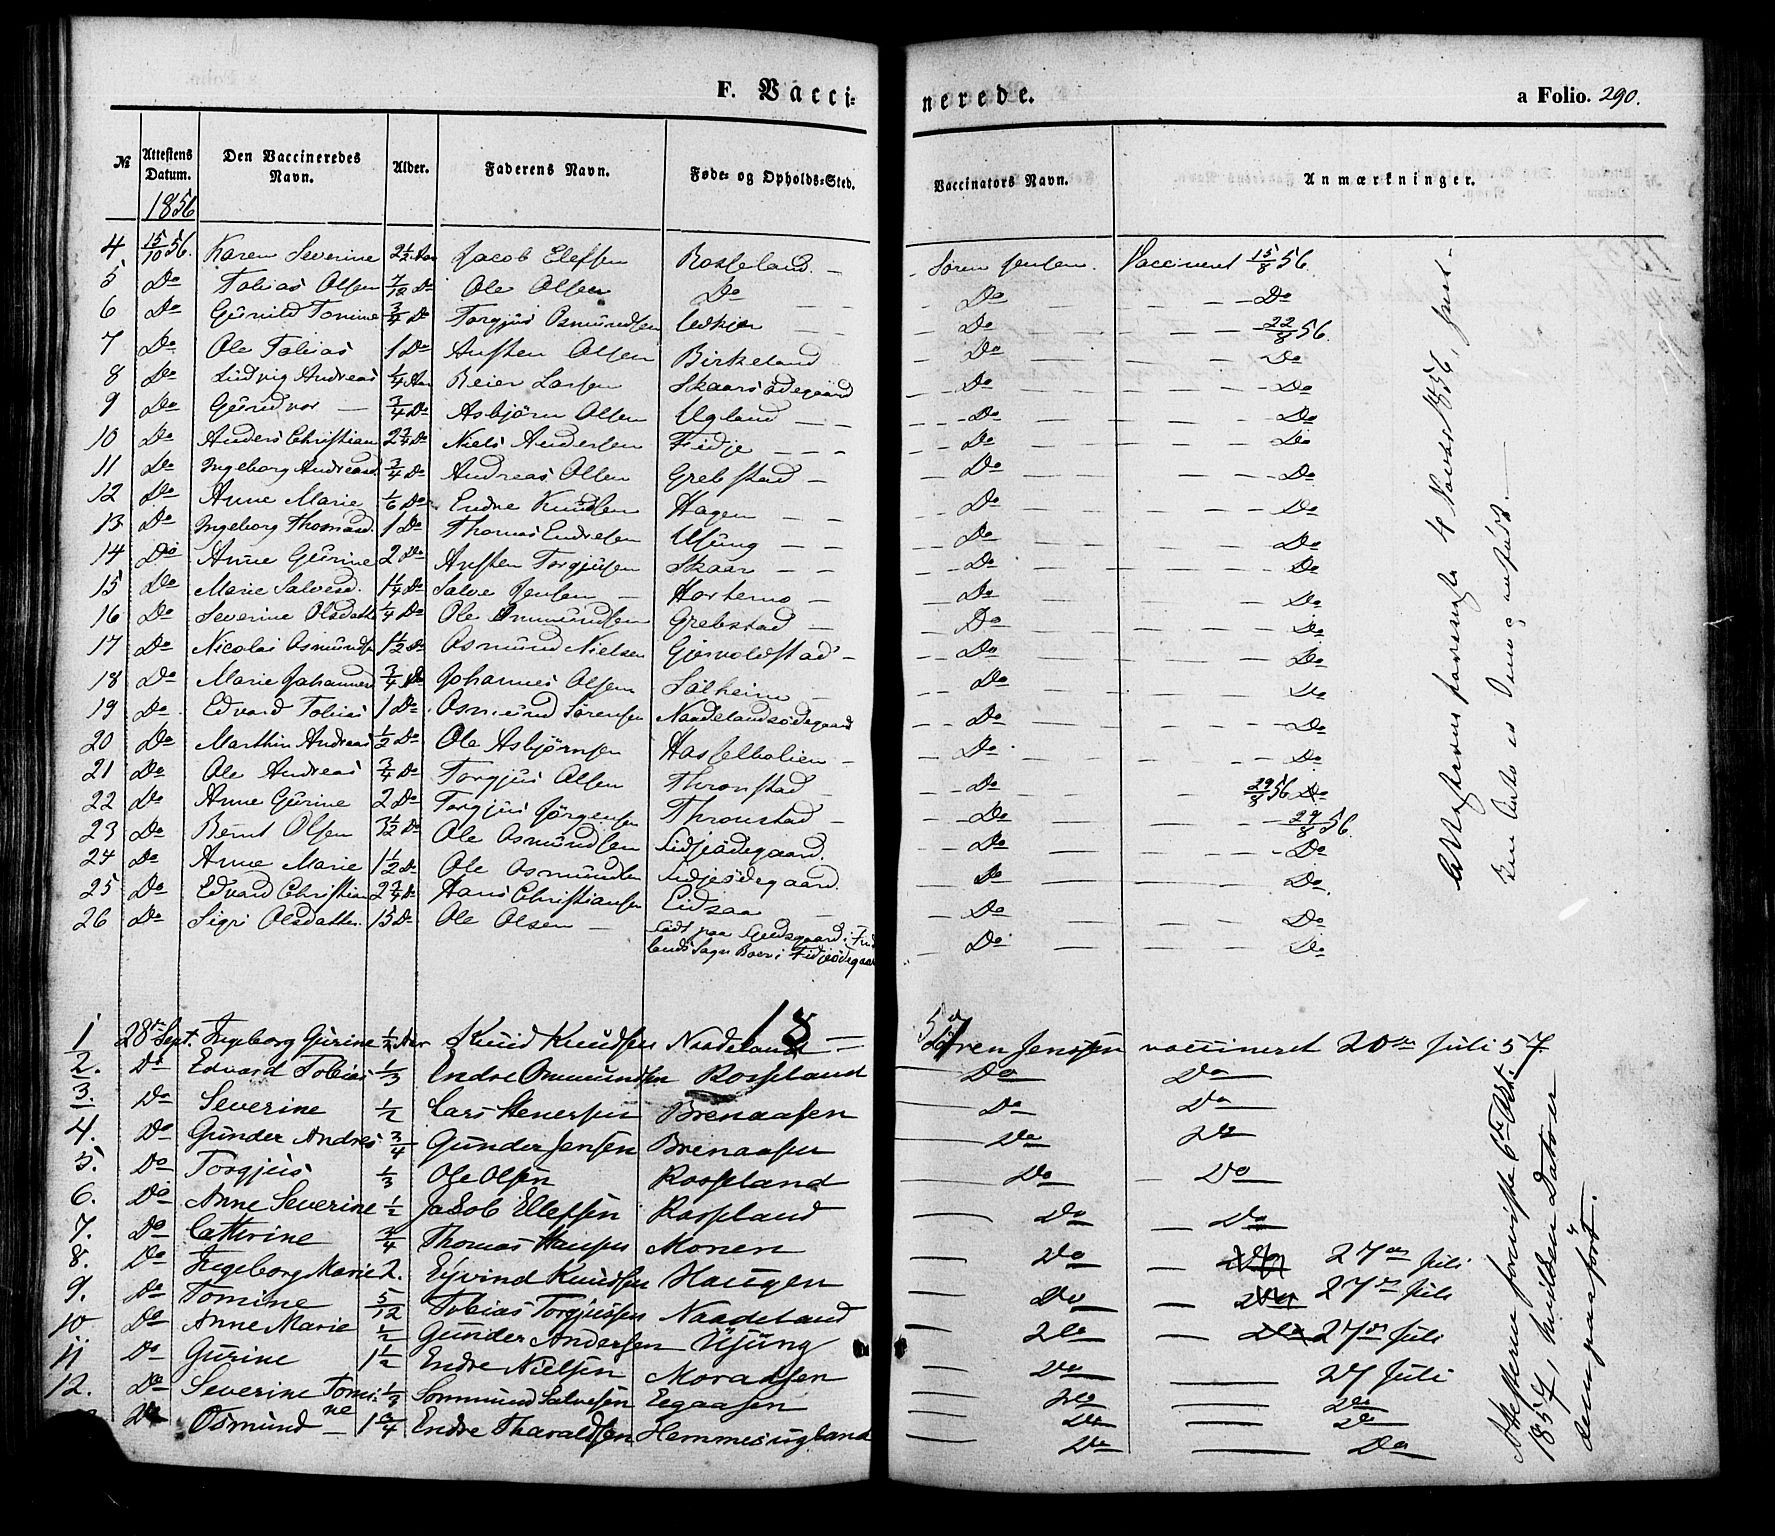 F. Vacci-nerede. a Folio. 290.
№ Attestens Datum. Den Vaccineredes Navn. Alder. Faderens Navn. Føde- og Opholds-Sted. Vaccinators Navn. Anmærkninger.
1856
4 15/10 56. Karen Severine 2½ Aar Jacob Elefsen Rosseland — Søren Jensen. Vaccineret 15/8 56.
5 Do Tobias Olsen 7/12 Do Ole Olsen Do — — Do — — Do
6 Do Gunild Tomine ¾ Do Torgjus Osmundsen — — Do — — 22/8 56.
7 Do Ole Tobias 1 Do Austen Olsen Birkeland Do — — Do
8 Do Ludvig Andreas ¼ Aar Beier Larsen Skaarsødegaard Do — — Do
9 Do Gundvor — ¾ Do Asbjørn Olsen Ugland — — Do — — Do
10 Do Anders Christian 2¾ Do Niels Andersen Fidje — — — Do — — Do
11 Do Ingeborg Andreasd. ¾ Do Andreas Olsen Grebstad — Do — — Do
12 Do Anne Marie 1/6 Do Endre Knudsen Hagen — — Do — — Do
13 Do Ingeborg Thomasd. 1 Do Thomas Endresen Usung — — Do — — Do
14 Do Anne Gurine 2 Do Austen Torgjusen Skaar — — Do — — Do
15 Do Marie Salvesd. 1¼ Do Salve Jensen — Hortemo — Do — — Do
16 Do Severine Olsdatter ¼ Do Ole Ommundsen Grebstad — Do — — Do
17 Do Nicolai Osmundsen 1½ Do Osmund Nielsen Gjervoldstad — Do — — Do
18 Do Marie Johannesd ¾ Do Johannes Olsen Solheim — Do — — Do
19 Do Edvard Tobias 1 Do Osmund Sørensen Naadelandsødegaard Do — — Do
20 Do Marthin Andreas ½ Do Ole Asbjørnsen Hasselholien — Do — — Do
21 Do Ole Andreas ¾ Do Torgjus Olsen Thronstad — Do — — 29/8 56 Do
22 Do Anne Gurine 2 Do Torgjus Jørgensen Thronstad — Do — — 29/8 56.
23 Do Bernt Olsen Do Ole Osmundsen Fidjeødegaard. Do — — Do
24 Do Anne Marie 1½ Do Ole Osmundsen Fidjeødegaard. Do — — Do.
25 Do Edvard Christian 2¾ Do Hans Christiansen Eidsaa — Do — — Do
26 Do Sigri Olsdatter 15 Do Ole Olsen — Født paa
Sogn Boer i Fidjeødegaard Do — — Do
Attesterne 4 Novbr 1856,
18 57
1 28de Sept. Ingeborg Gurine ½ Aar Knud Knudsen Naadeland — Søren Jensen vaccineret 20de Juli 57.
2. Do Edvard Tobias 1/3 Endre Ommundsen Rosseland Do Do
3. Do Severine ½ Lars Brenaasen Do Do
4. Do Gunder Andres ¾ Gunder Jensen Brenaasen Do Do
5. Do Torgjus 1/3 Ole Olsen Rosseland Do Do
6. Do Anne Severine ½ Jakob Ellefsen Rosseland Do Do
7. Do Cathrine ¾ Thomas Hansen Monen Do 27de Juli
8. Do Ingeborg Marie 2. Eyvind Knudsen Haugen Do 27de Juli
9. Do Tomine 5/12 Tobias Torgjussen Naadeland Do 27de Juli
10 Do Anne Marie ½ Gunder Andersen Usung Do 27 Juli
11 Do Gurine 1½ Endre Nielsen Moraasen Do Do
12. Do Severine Tomine 1/3 Sommund Salvesen Egaasen Do Do
Do Osmund — 1¾ Endre Tharaldsen Hemmesugland Do Do
Attesterne foreviiste 6te Oct. 1857, hvilken Dato er dem paaført.